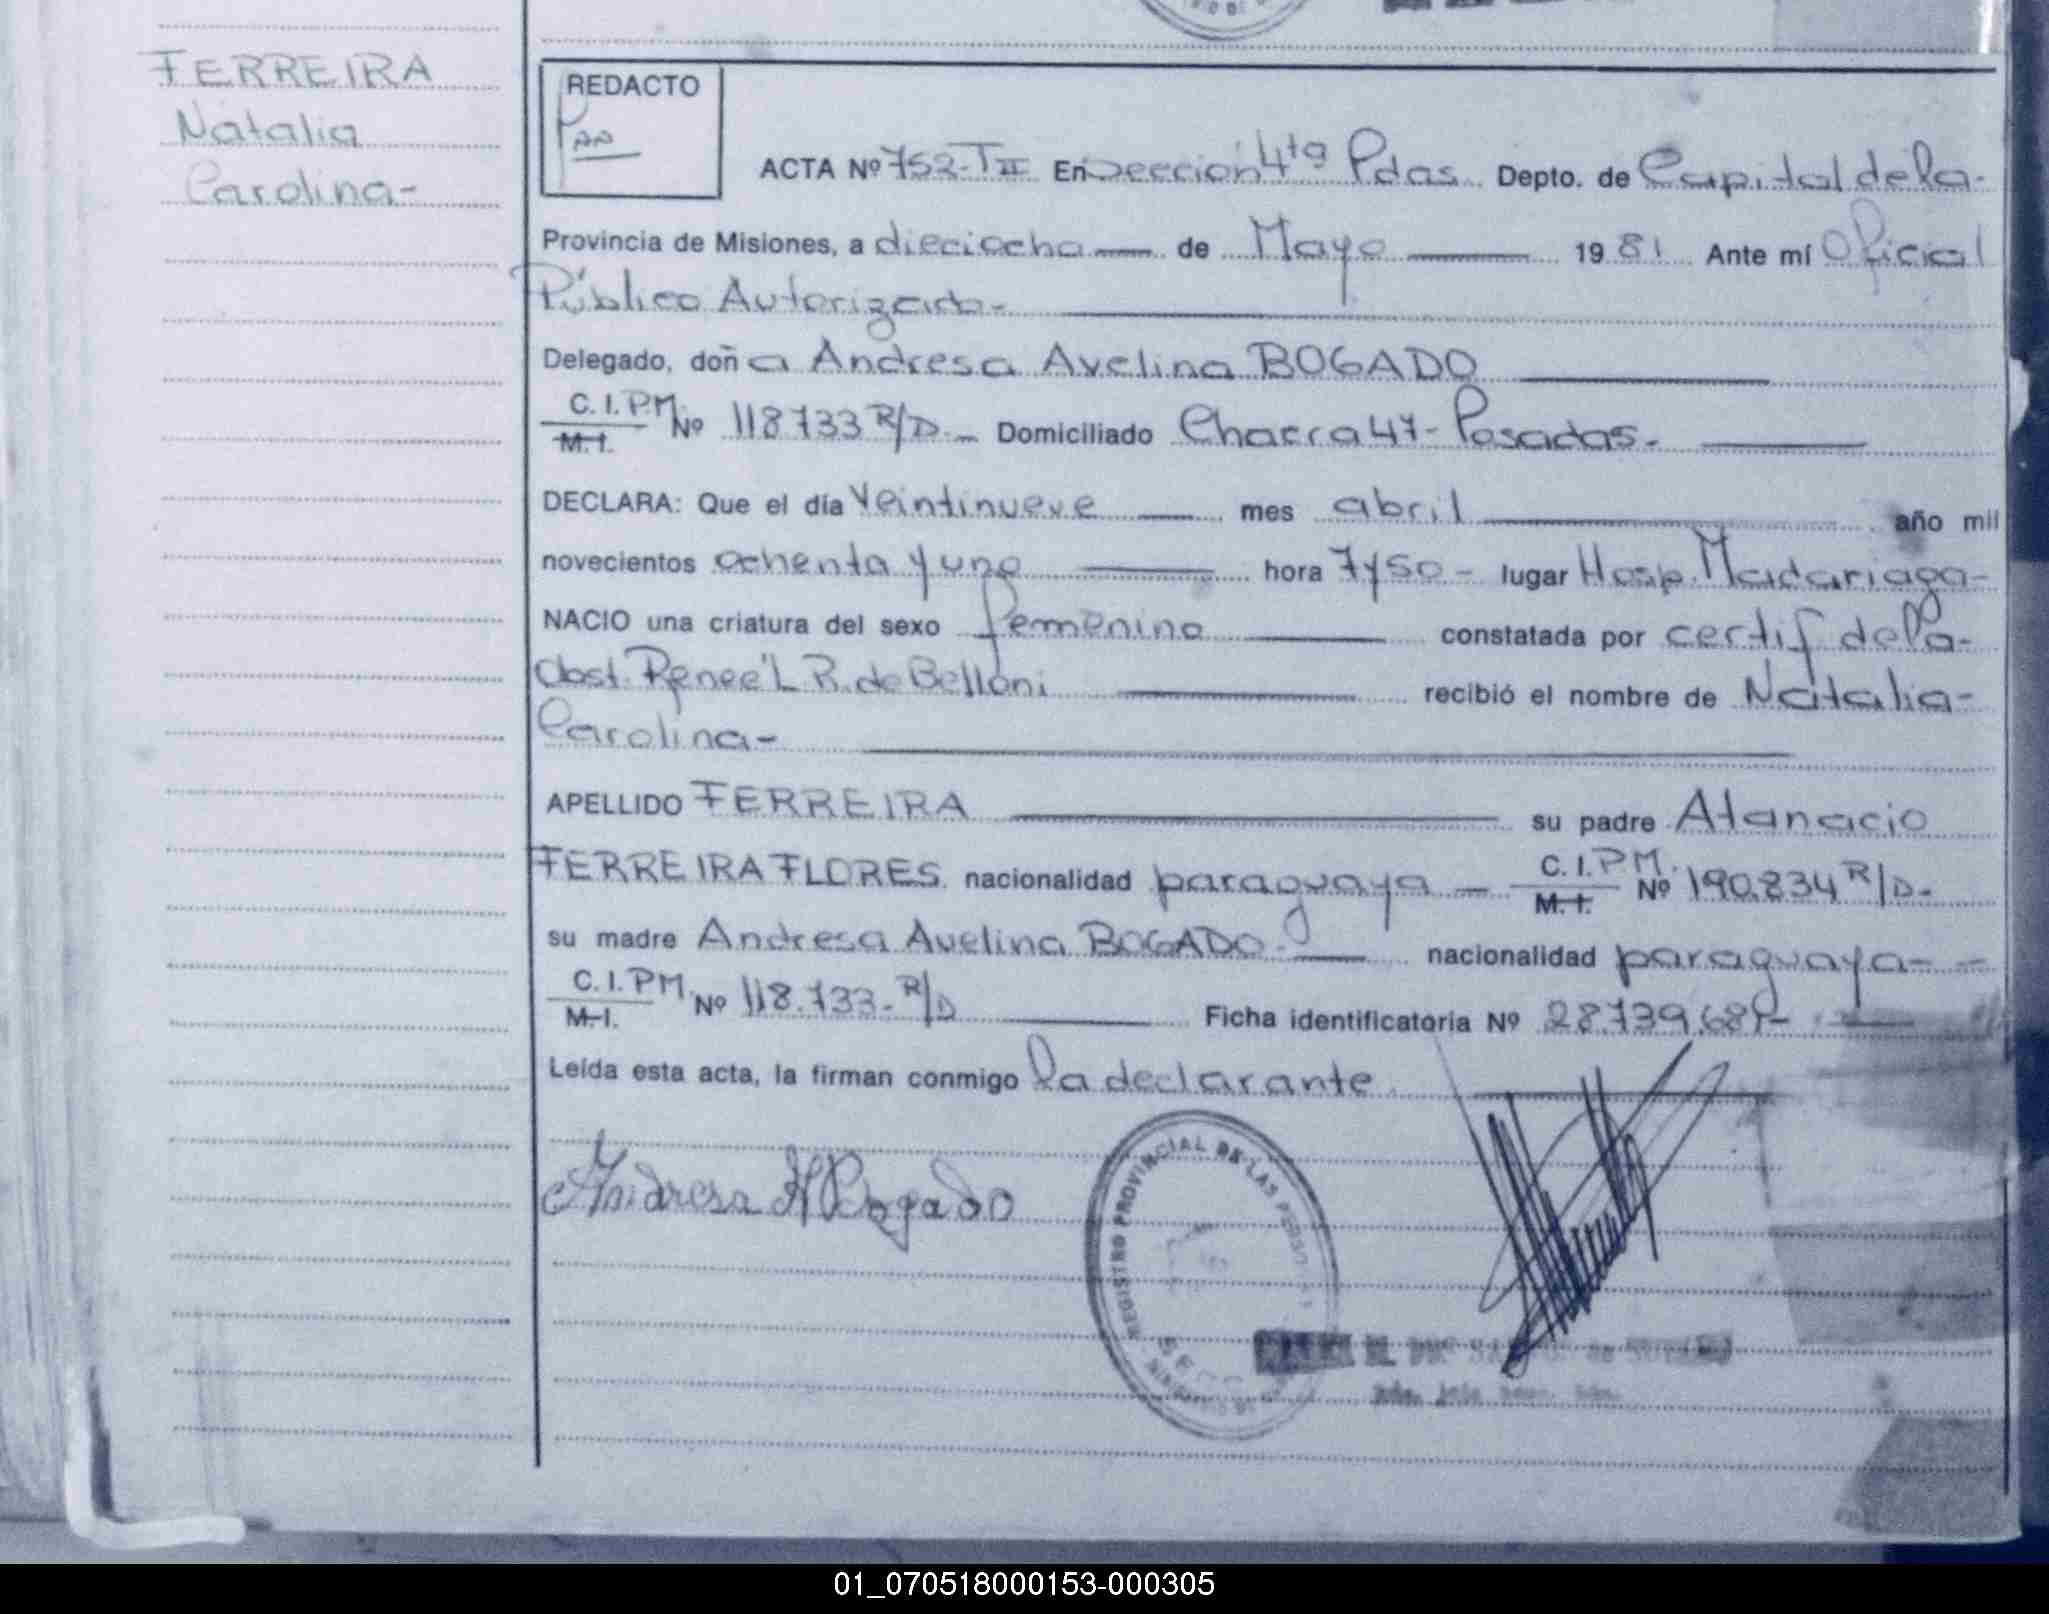 FERREIRA
Natalia
Carolina-
REDACTO
ACTA Nº 752-TII En Sección 4ta Pdas. Depto. de Capital de la-
Provincia de Misiones, a dieciocho de Mayo 1981 Ante mí Oficial
Público Autorizado-
Delegado, doña Andresa Avelina BOGADO
C. I. P.M. M. I. Nº 118733 R/D.- Domiciliado Chacra 47- Posadas.-
DECLARA: Que el día veintinueve mes abril año mil
novecientos ochenta y uno hora 7y50- lugar Hosp. Madariaga-
NACIO una criatura del sexo femenino constatada por certif de la-
Obst. Renee L R. de Belloni recibió el nombre de Natalia-
Carolina-
APELLIDO FERREIRA su padre Atanacio
FERREIRA FLORES nacionalidad paraguaya - C. I. P M. M. I. Nº 190.834 R/D.-
su madre Andresa Avelina BOGADO.- nacionalidad paraguaya- -
C. I. P M. M. I. Nº 118.733- R/D Ficha identificatoria Nº
Leída esta acta, la firman conmigo la declarante
Andresa A Bogado
REGISTRO PROVINCIAL DE LAS
01_070518000153-000305